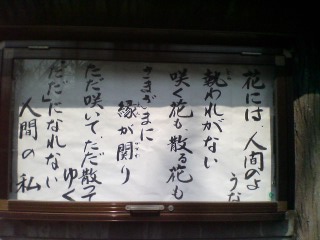 花には人間のような
執われがない
咲く花も散る花も
さまざまに
縁が関り
ただ咲いてただ散って
ゆく
「ただ」になれない
人間の私